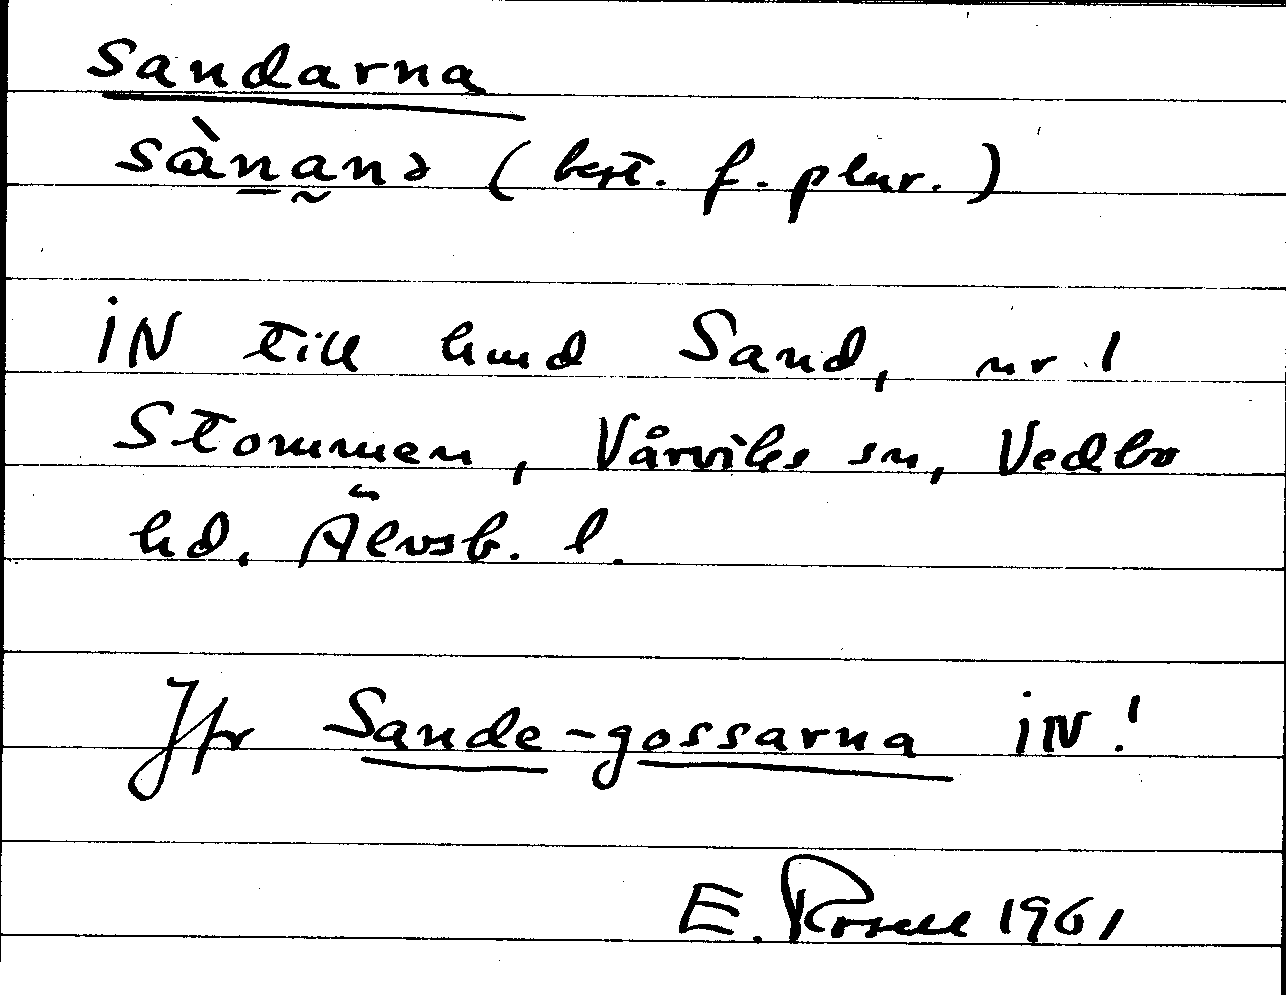 Sandarna
sànanɔ (best. f. plur.)
iN till hmd Sand, nr 1
Stommen, Vårviks sn, Vedbo
hd, Älvsb. l.
Jfr Sande-gossarna iN!
E. Rosell 1961